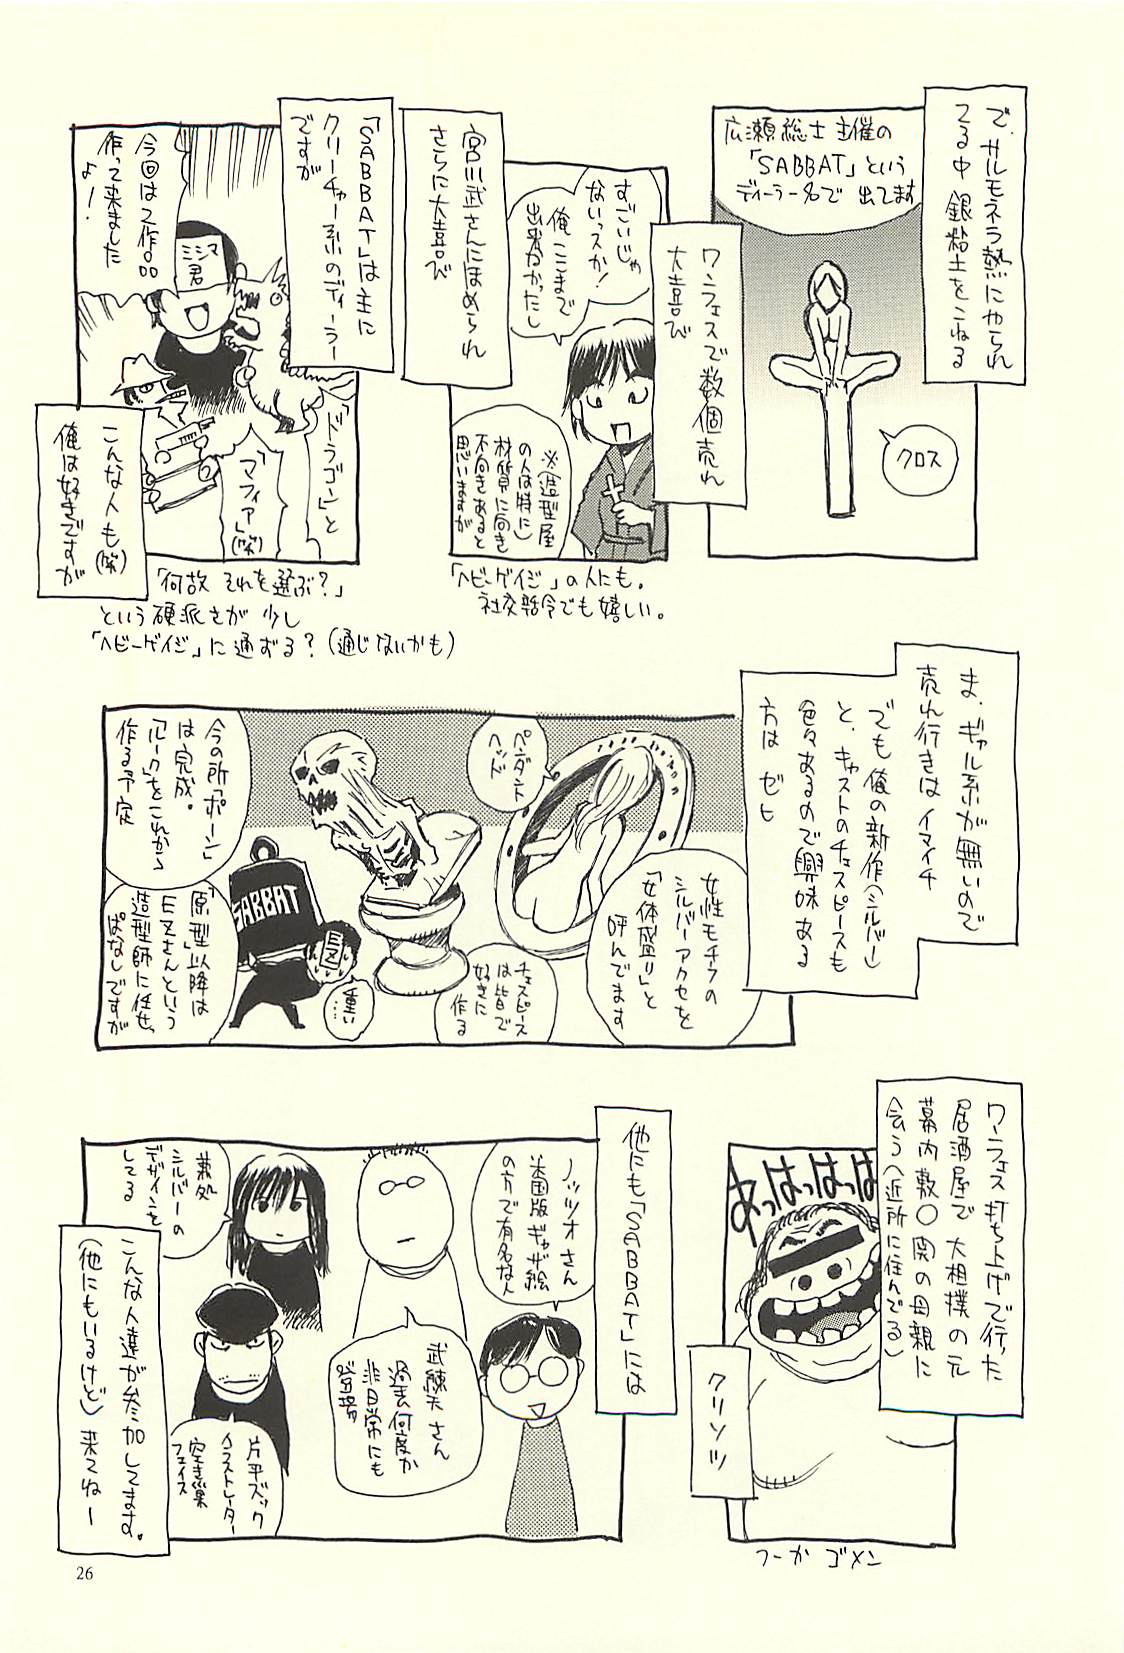 で、サルモネラ熱にやられ
てる中 銀粘土をこねる
広瀬総士 主催の
「SABBAT」という
ディーラー名で 出てます
クロス
ワンフェスで数個売れ
大喜び
すごいじゃ
ないっスか!
俺 ここまで
出来なかったし
※(造型屋
の人は特に)
材質に向き
不向きあると
思いますが
「ヘビーゲイジ」の人にも。
社交辞令でも嬉しい。
宮川武さんにほめられ
さらに大喜び
「SABBAT」は主に
クリーチャー系のディーラー
ですが
今回は2作品
作って来ました
よ!
ミシマ
君
「ドラゴン」と
「マフィア」(笑)
こんな人も(笑)
俺は好きですが
「何故 それを選ぶ?」
という硬派さが 少し
「ヘビーゲイジ」に通ずる?(通じないかも)
ま、ギャル系が無いので
売れ行きはイマイチ
でも俺の新作(シルバー)
と、キャストのチェスピースも
色々あるので興味ある
方はゼヒ
ペンダント
ヘッド
女性モチーフの
シルバーアクセを
「女体盛り」と
呼んでます
チェスピース
は皆で
好きに
作る
今の所「ポーン」
は完成。
「ルーク」をこれから
作る予定
SABBAT
EZ
重い
…
「原型」以降は
EZさんという
造型師に任せっ
ぱなしですが
ワンフェス打ち上げで行った
居酒屋で 大相撲の元
幕内敷○関の母親に
会う(近所に住んでる)
あっはっはっはっは
クリソツ
つーか ゴメン
他にも「SABBAT」には
ノッツオさん
米国版ギャザ絵
の方で有名な人
武錬天さん
過去何度か
非日常にも
登場
兼処
シルバーの
デザインを
してる
片平ズック
イラストレーター
空き巣
フェイス
こんな人達が参加してます。
(他にもいるけど)来てねー
26